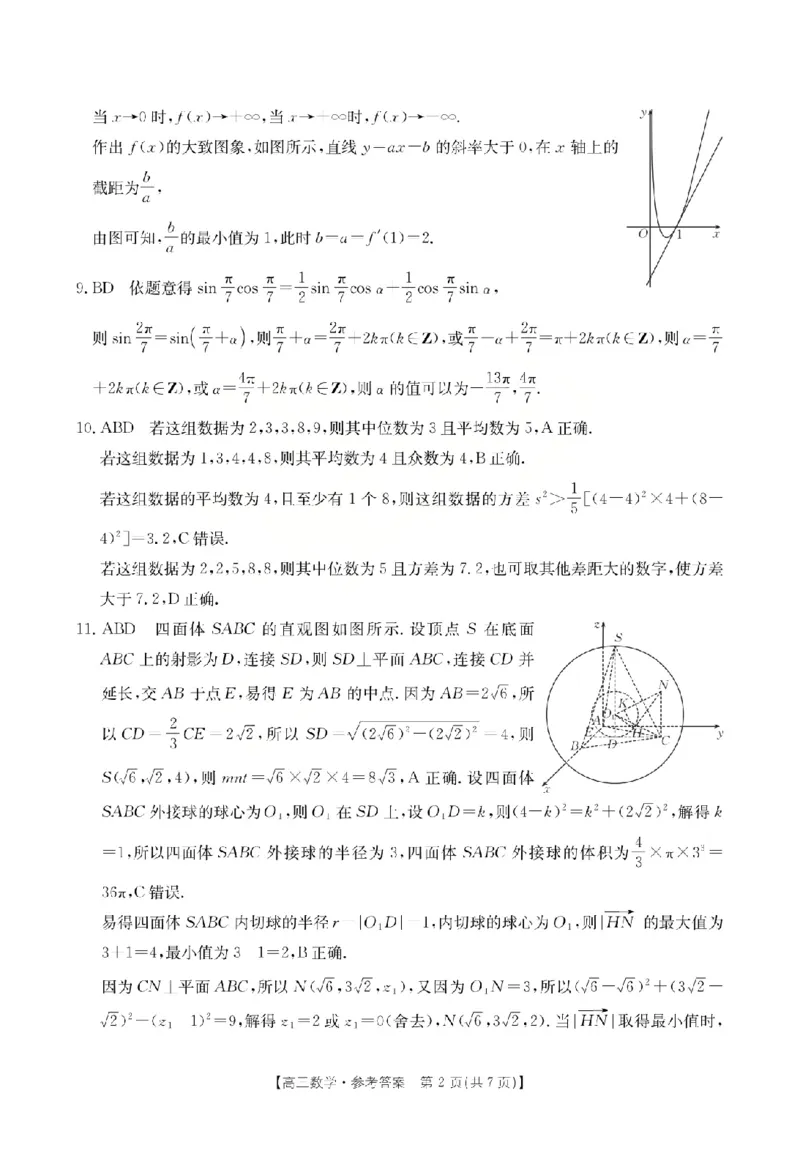 当 x→0 时,f(x)→+∞,当 x→+∞时,f(x)→+∞.
作出 f(x)的大致图象,如图所示,直线 y=ax-b 的斜率大于 0,在 x 轴上的
截距为b/a,
由图可知,b/a的最小值为 1,此时 b=a=f′(1)=2.
y
O
1
x
9. BD 依题意得 sin π/7 cos π/7=1/2 sin π/7 cos α+1/2 cos π/7 sin α,
则 sin 2π/7=sin(π/7+α),则π/7+α=2π/7+2kπ(k∈Z),或π/7+α+2π/7=π+2kπ(k∈Z),则 α=π/7
+2kπ(k∈Z),或 α=4π/7+2kπ(k∈Z),则 α 的值可以为-13π/7,4π/7.
10. ABD 若这组数据为 2,3,3,8,9,则其中位数为 3 且平均数为 5,A 正确.
若这组数据为 1,3,4,4,8,则其平均数为 4 且众数为 4,B 正确.
若这组数据的平均数为 4,且至少有 1 个 8,则这组数据的方差 s²>1/5[(4-4)²×4+(8-
4)²]=3.2,C 错误.
若这组数据为 2,2,5,8,8,则其中位数为 5 且方差为 7.2,也可取其他差距大的数字,使方差
大于 7.2,D 正确.
11. ABD 四面体 SABC 的直观图如图所示. 设顶点 S 在底面
ABC 上的射影为 D,连接 SD,则 SD⊥平面 ABC,连接 CD 并
延长,交 AB 于点 E,易得 E 为 AB 的中点. 因为 AB=2√6,所
以 CD=2/3 CE=2√2,所以 SD=√((2√6)²-(2√2)²)=4,则
S(√6,√2,4),则 mnt=√6×√2×4=8√3,A 正确. 设四面体
z
S
N
K
O₁
A
H
E
B
D
C
y
x
SABC 外接球的球心为 O₁,则 O₁ 在 SD 上,设 O₁D=k,则(4-k)²=k²+(2√2)²,解得 k
=1,所以四面体 SABC 外接球的半径为 3,四面体 SABC 外接球的体积为 4/3×π×3³=
36π,C 错误.
易得四面体 SABC 内切球的半径 r=|O₁D|=1,内切球的球心为 O₁,则|HN|的最大值为
3+1=4,最小值为 3-1=2,B 正确.
因为 CN⊥平面 ABC,所以 N(√6,3√2,z₁),又因为 O₁N=3,所以(√6-√6)²+(3√2-
√2)²+(z₁-1)²=9,解得 z₁=2 或 z₁=0(舍去),N(√6,3√2,2). 当|HN|取得最小值时,
【高三数学·参考答案 第 2 页(共 7 页)】